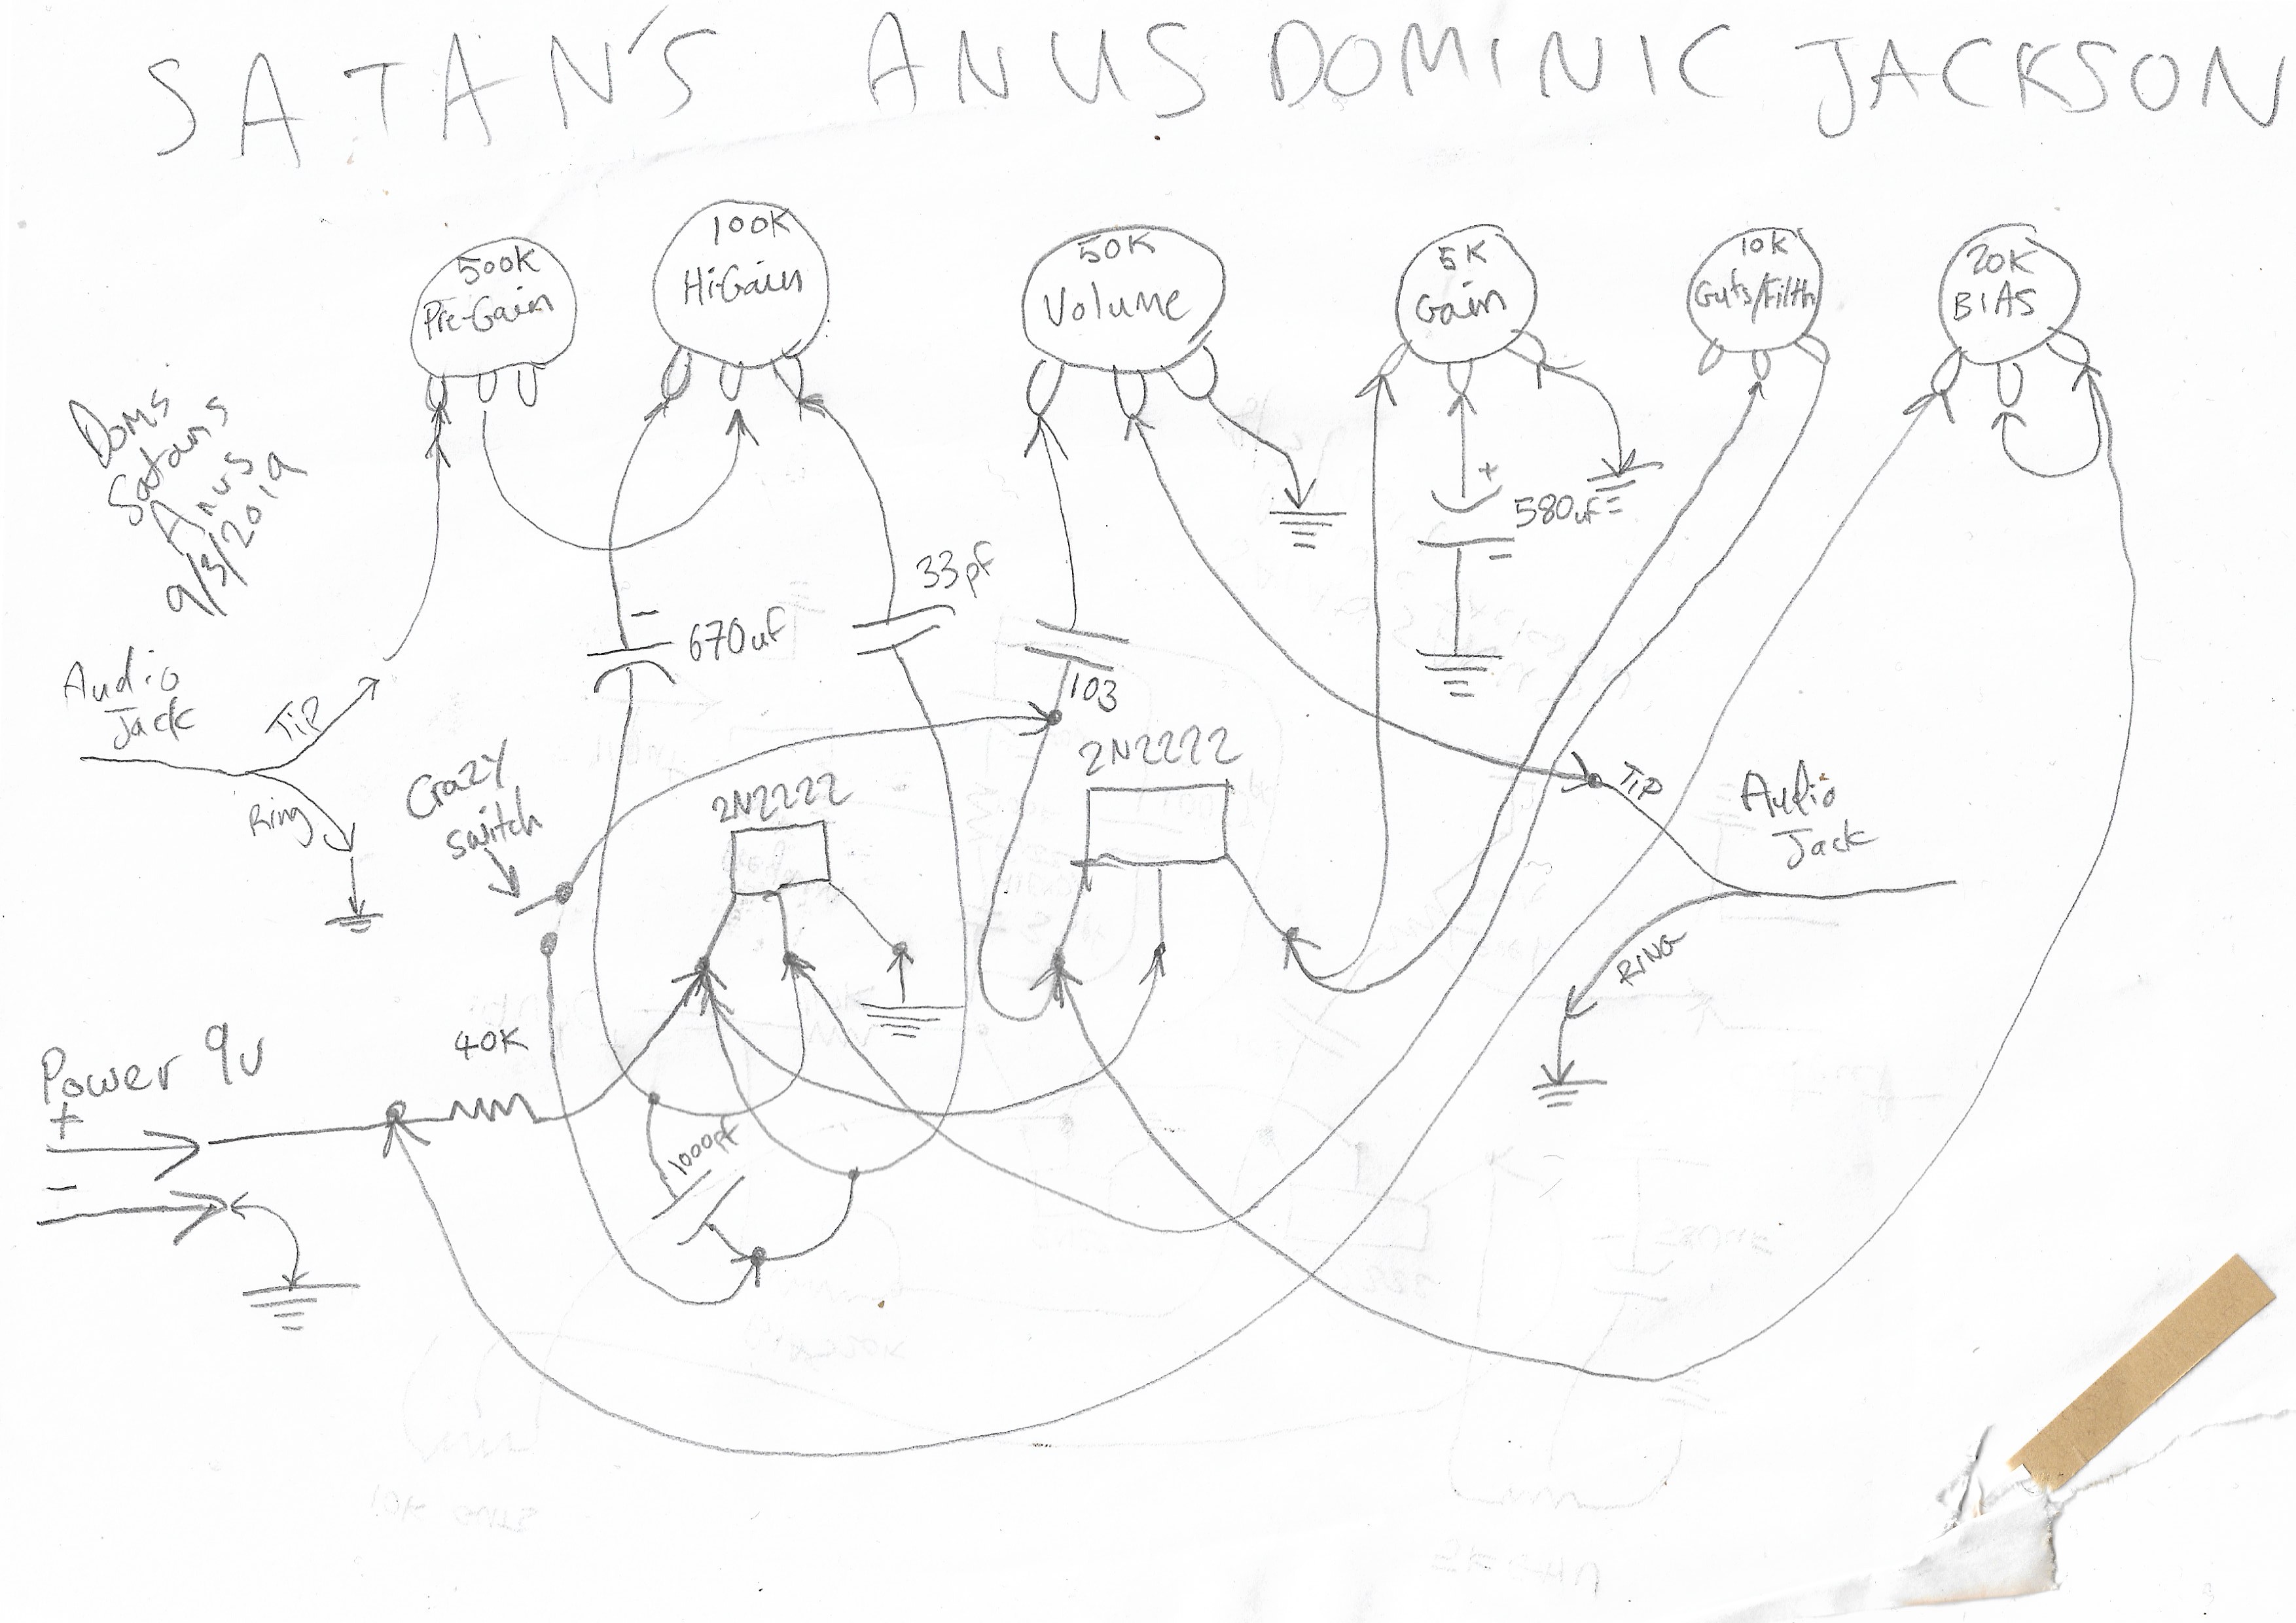 SATAN'S ANUS DOMINIC JACKSON
500K
Pre-Gain
100K
Hi-Gain
50K
Volume
5K
Gain
10K
Guts/Filth
20K
BIAS
Doms
Satans
Anus
9/3/2019
+
580uf
-
33pf
-
670uf
103
Audio
Jack
Tip
Ring
Crazy
Switch
2N2222
2N2222
Tip
Audio
Jack
RING
40K
Power 9v
+
-
1000pf